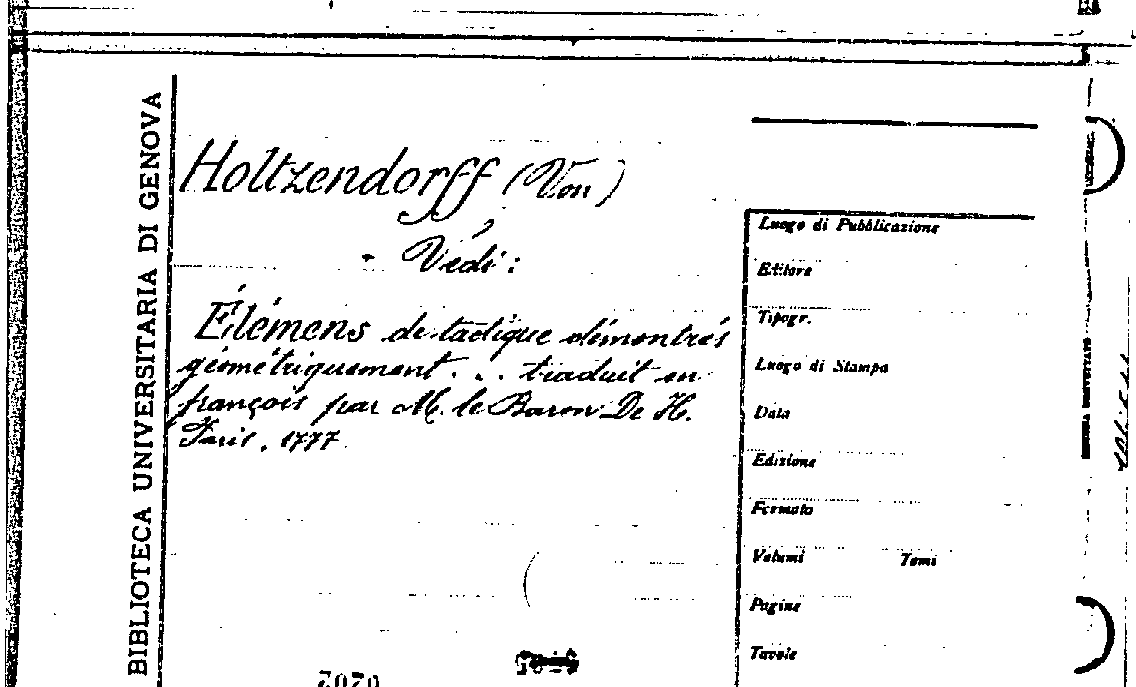 BIBLIOTECA UNIVERSITARIA DI GENOVA
Holtzendorff (Von)
Vedi:
Élémens de tactique démontrés
géométriquement... traduit en
françois par M. le Baron De H.
Paris, 1777.
Luogo di Pubblicazione
Editore
Tipogr.
Luogo di Stampa
Data
Edizione
Formato
Volumi Tomi
Pagine
Tavole